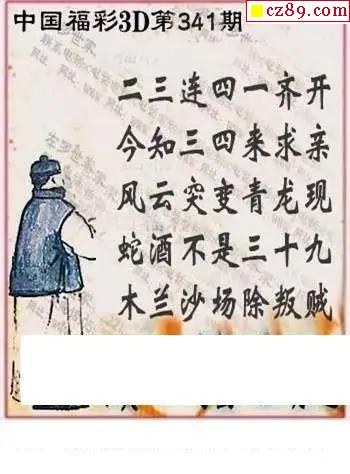 cz89.com
中国福彩3D第341期
二三连四一齐开
今知三四来求亲
风云突变青龙现
蛇酒不是三十九
木兰沙场除叛贼